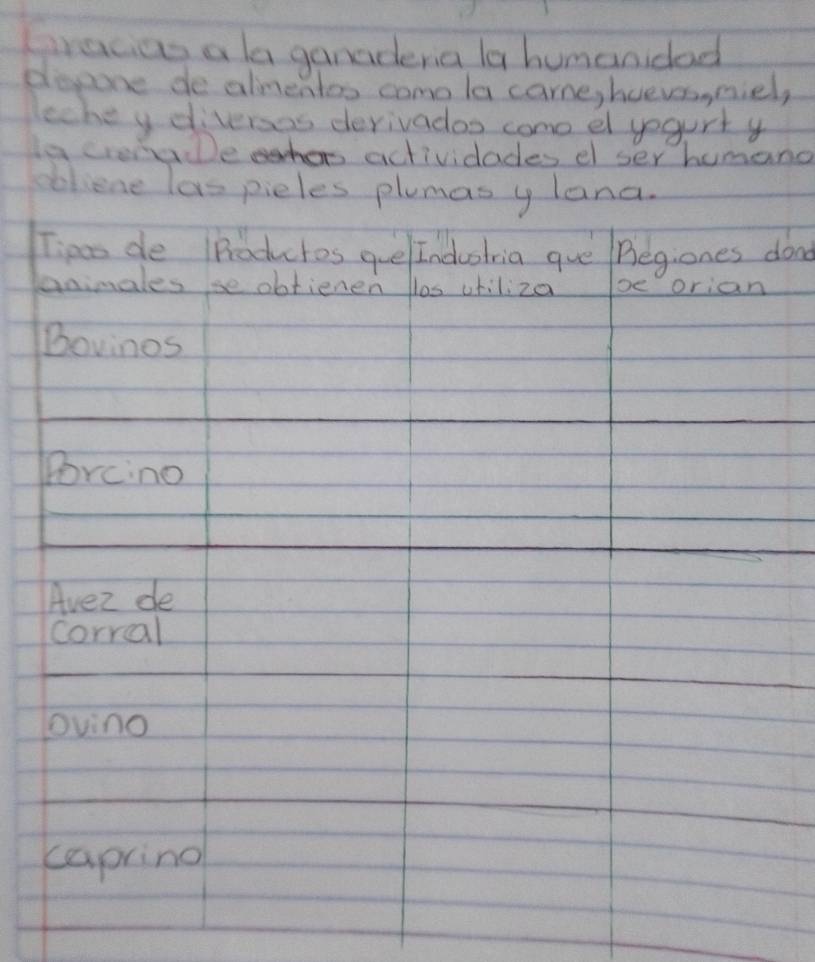 Gracias a la ganaderia la humanidad
dispone de alimentos como la carne, huevos, miel,
leche y diversos derivados como el yogurt y
la crema De actividades el ser humano
obtiene las pieles plumas y lana.
Tipos de Productos que Industria que Regiones dond
animales se obtienen los utiliza se crian
Bovinos
Porcino
Avez de
corral
ovino
caprino